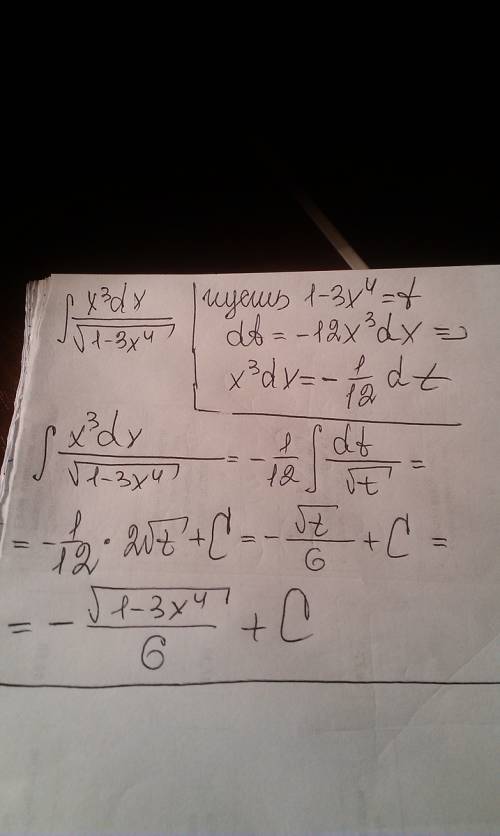 ∫ x³dx / √(1-3x⁴) | пусть 1-3x⁴=t
dt = -12x³dx =>
x³dx = - 1/12 dt
∫ x³dx / √(1-3x⁴) = - 1/12 ∫ dt / √t =
= - 1/12 · 2√t + C = - √t / 6 + C =
= - √(1-3x⁴) / 6 + C